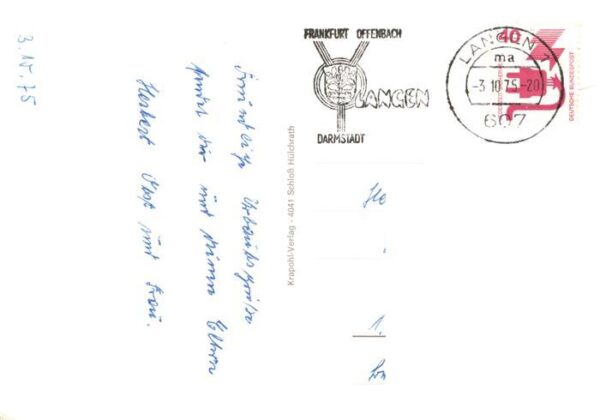 3. 10. 75
Freundliche Urlaubsgrüße
sendet Dir und Deinen Eltern
Herbert und Frau.
Krapohl-Verlag - 4041 Schloß Hülchrath
FRANKFURT OFFENBACH
LANGEN
DARMSTADT
LANGEN 1
ma
-3.10.75-20
607
40
DEUTSCHE BUNDESPOST
1.